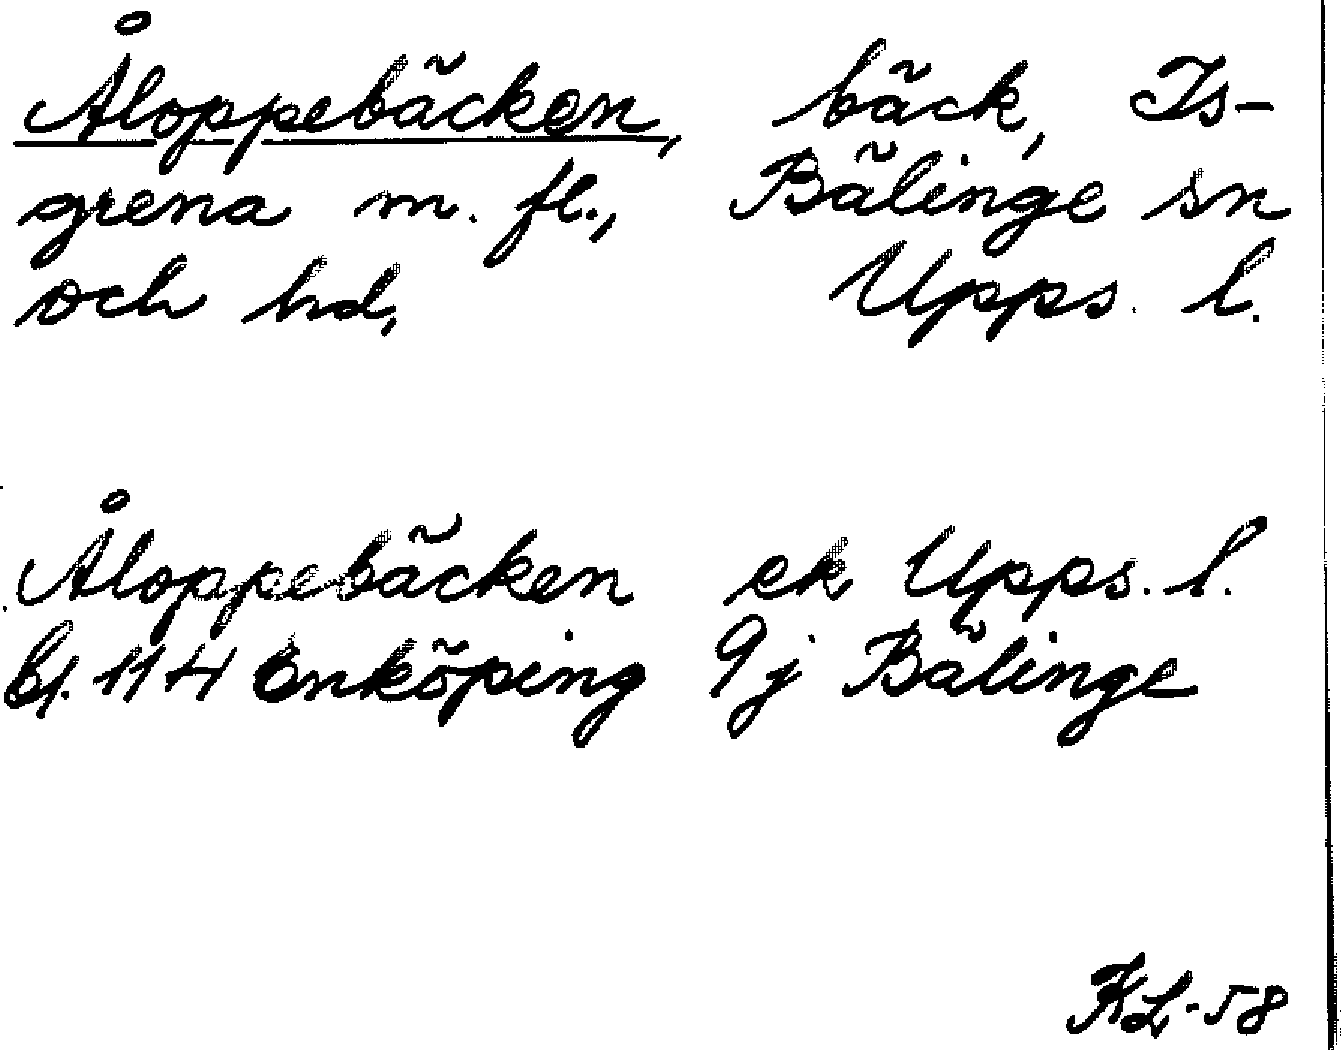 Åloppebäcken, bäck, Is-
grena m. fl., Bälinge sn
och hd, Upps. l.
Åloppebäcken ek Upps. l.
bl. 114 Enköping 9j Bälinge
KL-58